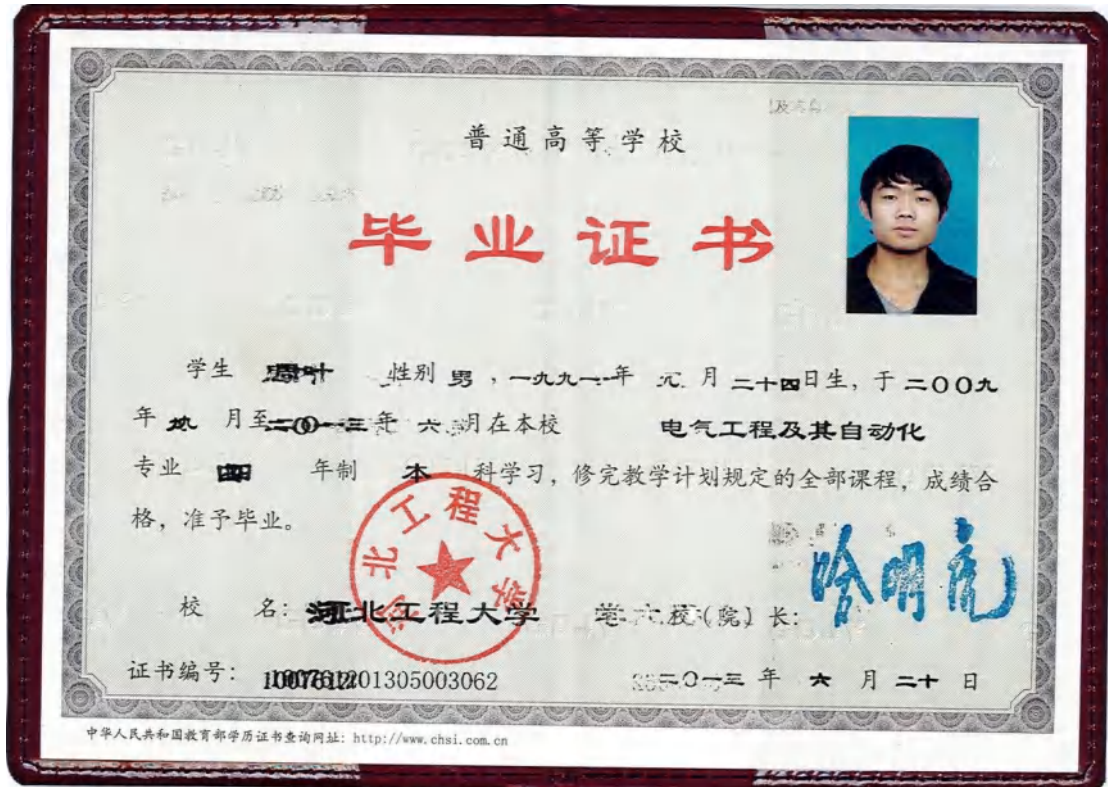 普通高等学校
毕业证书
学生 性别 男，一九九一年 元 月 二十四日生，于 二〇〇九
年 九 月至二〇一三年 六 月在本校 电气工程及其自动化
专业 四 年制 本 科学习，修完教学计划规定的全部课程，成绩合
格，准予毕业。
河北工程大学
校 名：河北工程大学 校(院)长：哈明虎
证书编号： 201305003062 二〇一三 年 六 月 二十 日
中华人民共和国教育部学历证书查询网址：http://www.chsi.com.cn